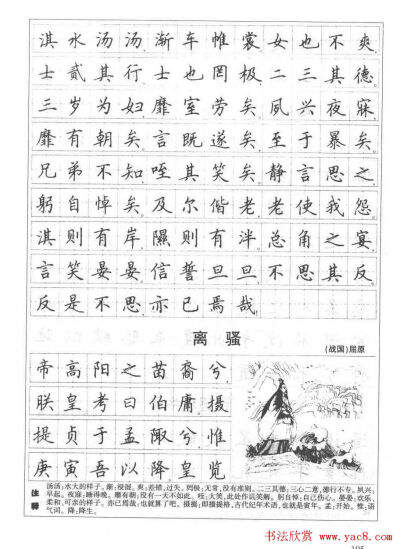 淇水汤汤渐车帷裳女也不爽,
士贰其行士也罔极,二三其德。
三岁为妇靡室劳矣,夙兴夜寐,
靡有朝矣。言既遂矣,至于暴矣。
兄弟不知,咥其笑矣。静言思之,
躬自悼矣。及尔偕老,老使我怨。
淇则有岸,隰则有泮。总角之宴,
言笑晏晏。信誓旦旦,不思其反。
反是不思,亦已焉哉。
离骚
(战国)屈原
帝高阳之苗裔兮,
朕皇考曰伯庸。摄
提贞于孟陬兮,惟
庚寅吾以降。皇览
注释
汤汤:水大的样子。渐:浸湿。爽:差错,过失。罔极:无常,没有准则。二三其德:三心二意,德行不专。夙兴:
早起。夜寐:睡得晚。靡有朝:没有一天不如此。咥:大笑,此处作讥笑解。躬自悼:自己伤心。晏晏:欢乐、
柔和,可亲的样子。亦已焉哉:也就算了吧。摄提:即摄提格,古代纪年术语,也就是寅年。孟:开始。惟:语
气词。降:降生。
书法欣赏
www.yac8.com
105